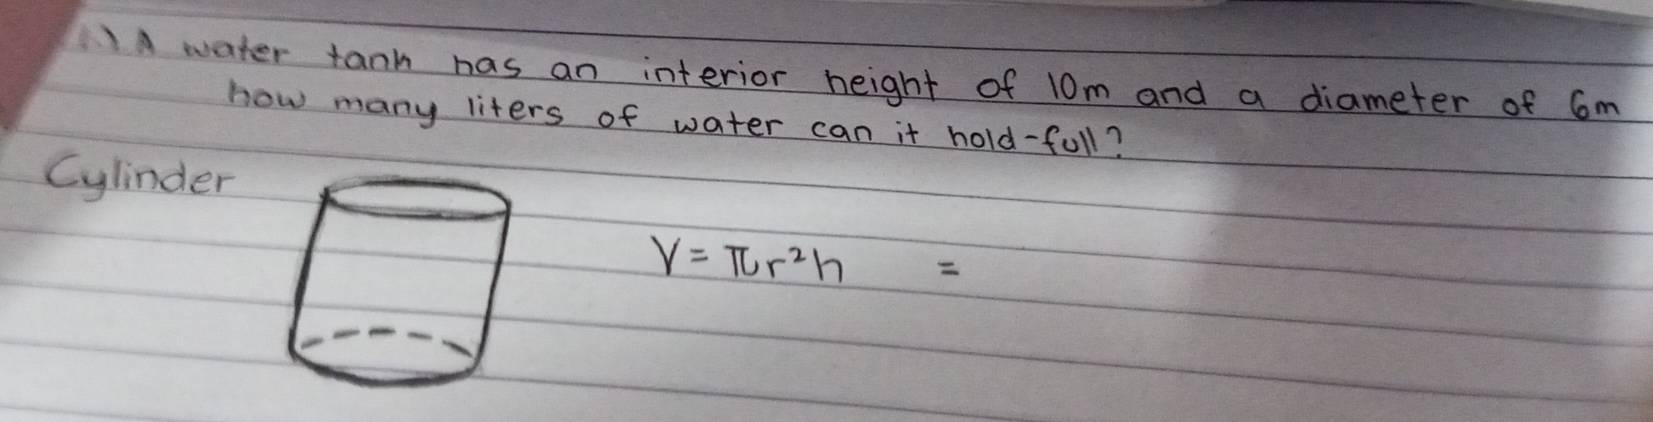 1) A water tank has an interior height of 10m and a diameter of 6m
how many liters of water can it hold-full?
Cylinder
V = πr²h =